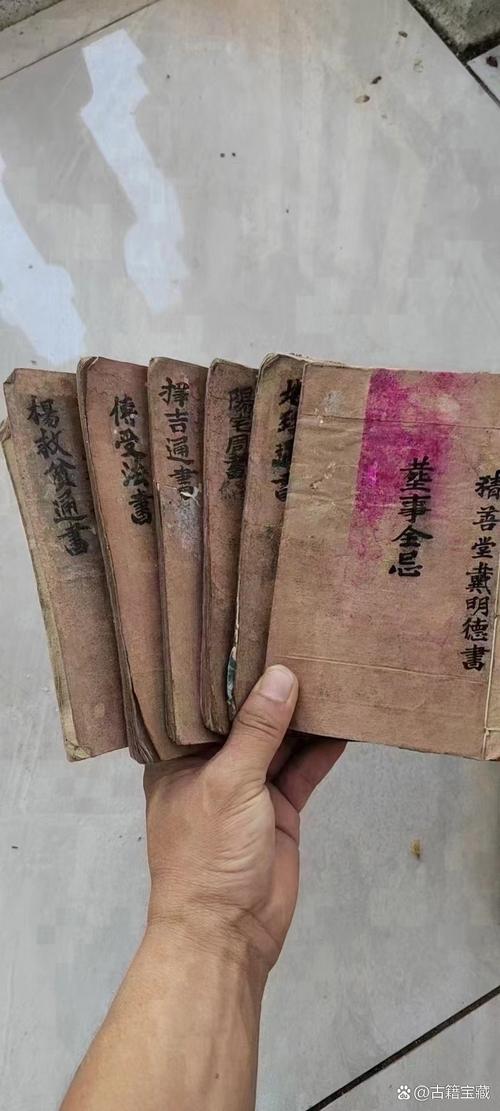 楊救貧通書
傳受法書
擇吉通書
陽宅周書
地理通書
葬事全忌
積善堂戴明德書
@古籍宝藏